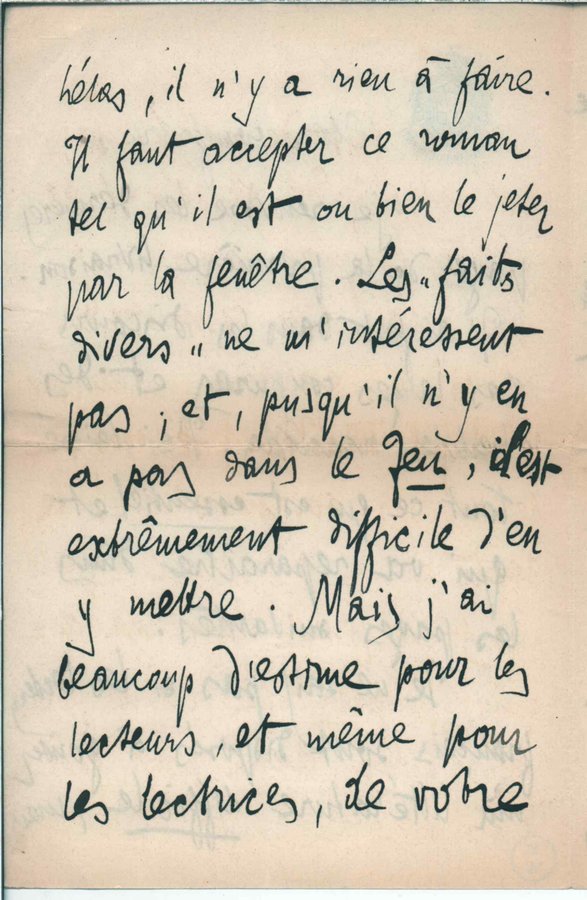 hélas, il n'y a rien à faire.
Il faut accepter ce roman
tel qu'il est ou bien le jeter
par la fenêtre. Les „faits
divers" ne m'intéressent
pas ; et, pusqu'il n'y en
a pas dans le Jeu, c'est
extrêmement difficile d'en
y mettre. Mais j'ai
beaucoup d'estime pour les
lecteurs, et même pour
les lectrices, de votre